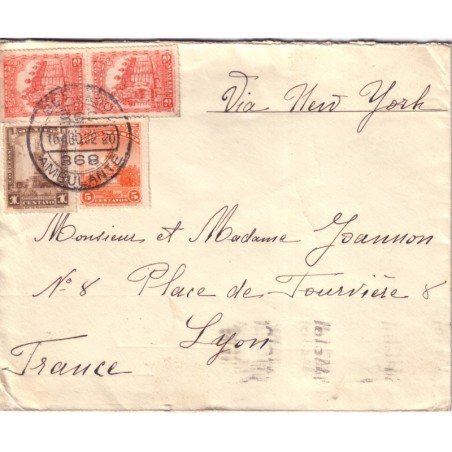 Via New York
368
AMBULANTE
1 CENTAVO
5 CENTAVOS 5
Monsieur et Madame Joannon
No 8 Place de Fourvière 8
Lyon
France